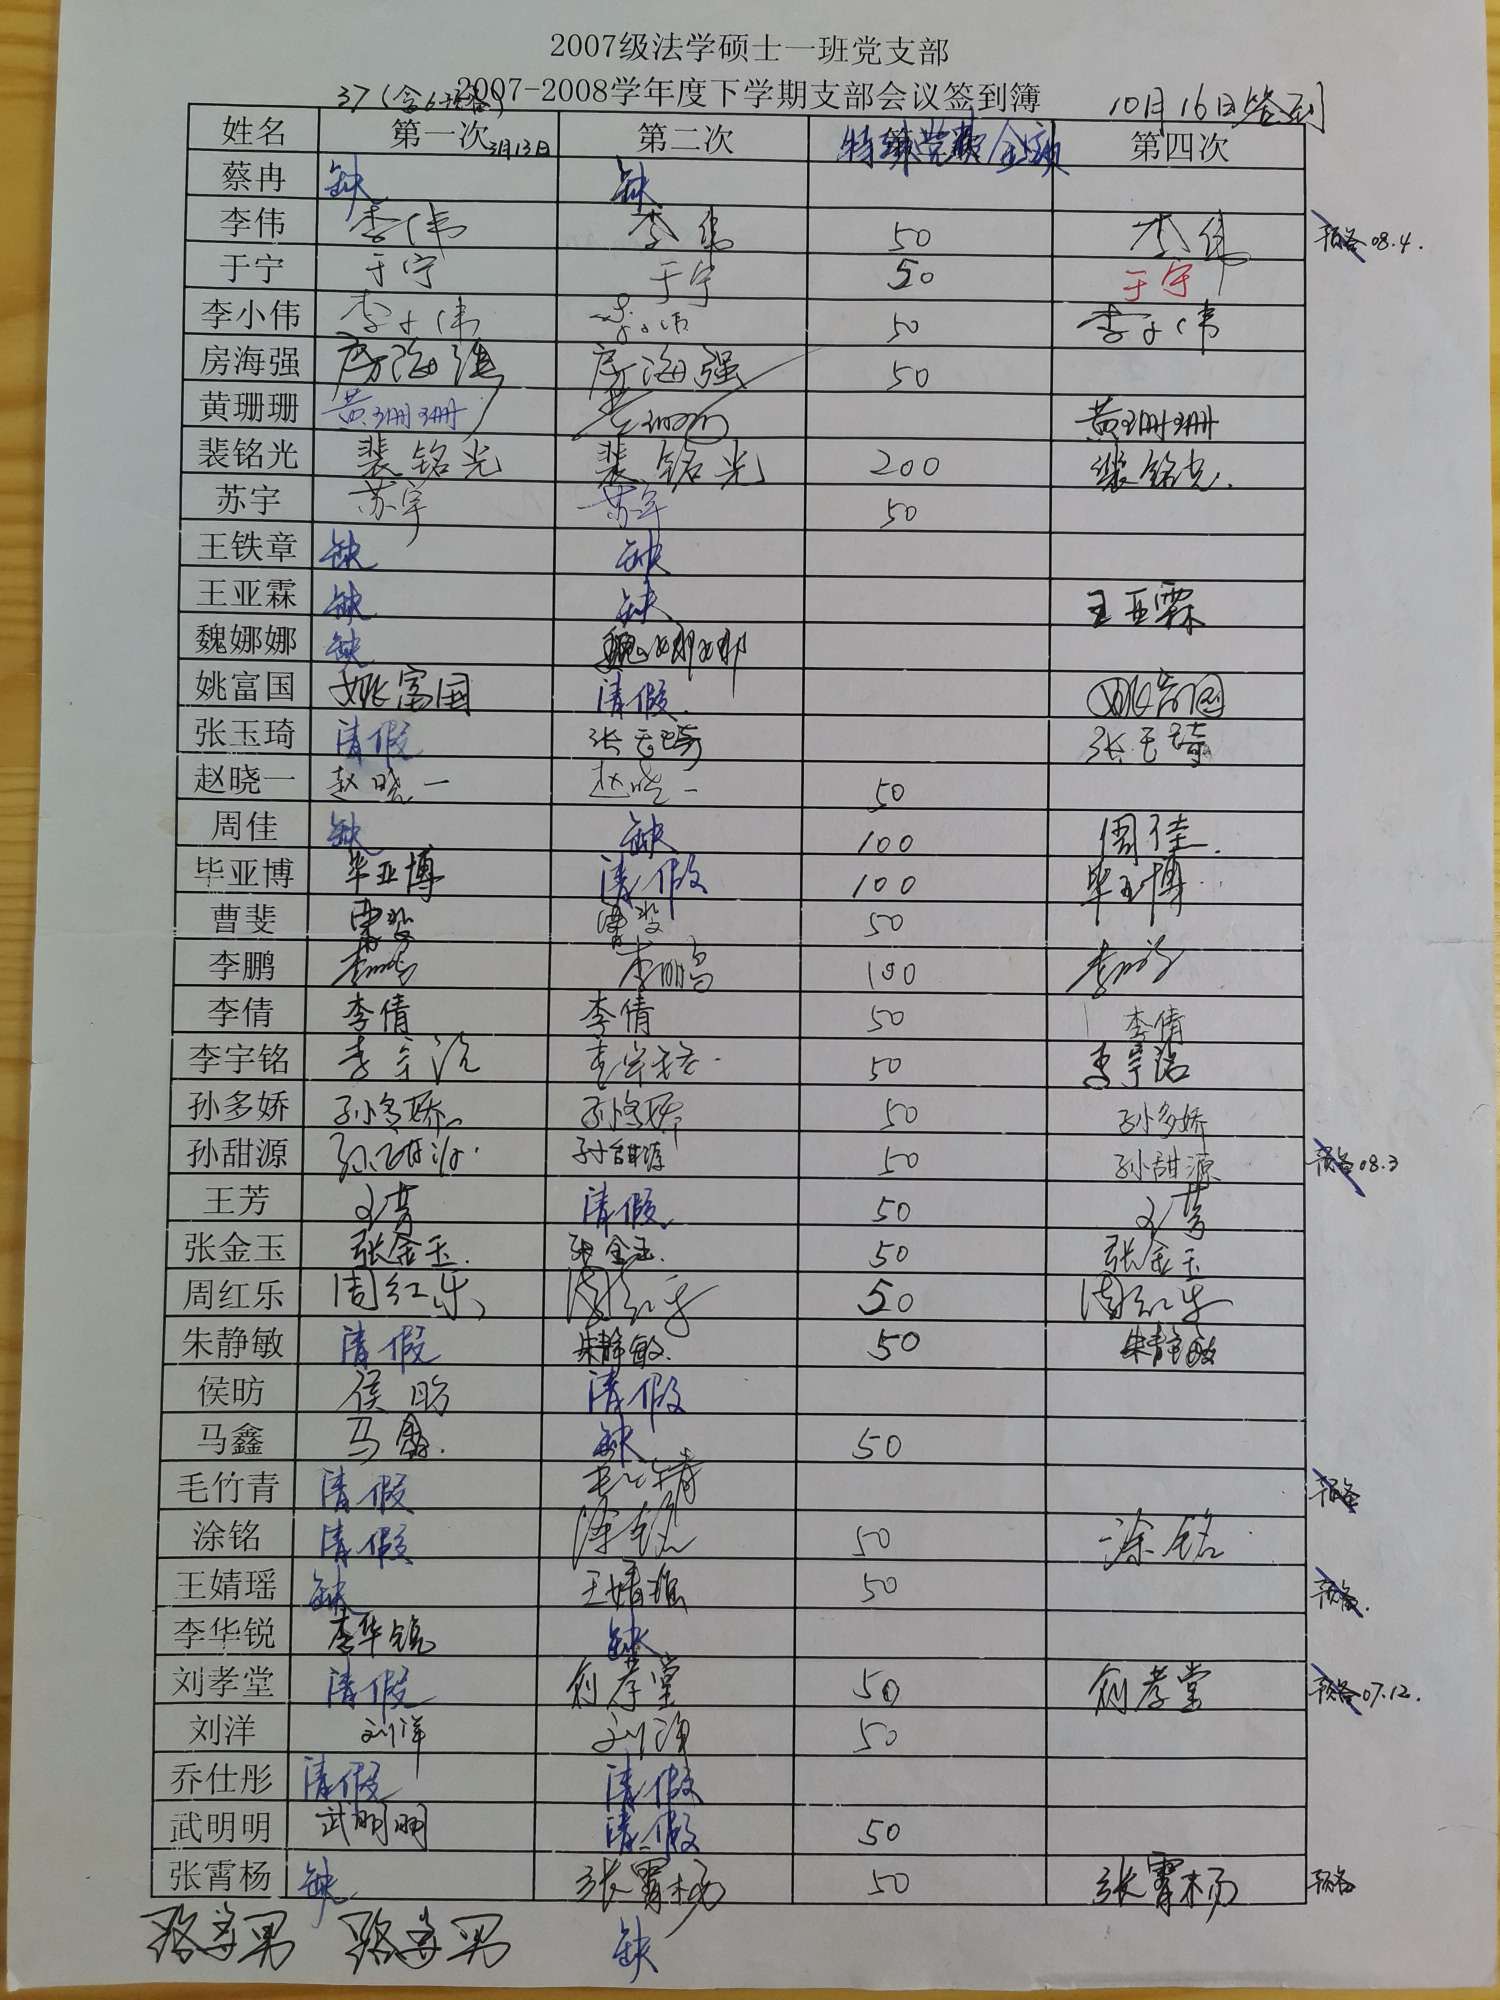 2007级法学硕士一班党支部
37(含6预备) 2007-2008学年度下学期支部会议签到簿 10月16日签到
姓名 第一次 3月13日 第二次 特殊党费金额 第四次
蔡冉 缺 缺
李伟 李伟 李伟 50 李伟 预备08.4.
于宁 于宁 于宁 50 于宁
李小伟 李小伟 李小伟 50 李小伟
房海强 房海强 房海强 50
黄珊珊 黄珊珊 黄珊珊 黄珊珊
裴铭光 裴铭光 裴铭光 200 裴铭光.
苏宇 苏宇 苏宇 50
王铁章 缺 缺
王亚霖 缺 缺 王亚霖
魏娜娜 缺 魏娜娜
姚富国 姚富国 请假. 姚富国
张玉琦 请假 张玉琦 张玉琦
赵晓一 赵晓一 赵晓一 50
周佳 缺 缺 100 周佳.
毕亚博 毕亚博 请假 100 毕亚博
曹斐 曹斐 曹斐 50
李鹏 李鹏 李鹏 100 李鹏
李倩 李倩 李倩 50 李倩
李宇铭 李宇铭 李宇铭 50 李宇铭
孙多娇 孙多娇 孙多娇 50 孙多娇
孙甜源 孙甜源 孙甜源 50 孙甜源 预备08.3
王芳 王芳 请假 50 王芳
张金玉 张金玉. 张金玉. 50 张金玉
周红乐 周红乐 周红乐 50 周红乐
朱静敏 请假 朱静敏. 50 朱静敏
侯昉 侯昉 请假
马鑫 马鑫. 缺 50
毛竹青 请假 毛竹青 预备
涂铭 请假 涂铭 50 涂铭
王婧瑶 缺 王婧瑶 50 预备.
李华锐 李华锐 缺
刘孝堂 请假 刘孝堂 50 刘孝堂 预备07.12.
刘洋 刘洋 刘洋 50
乔仕彤 请假 请假
武明明 武明明 请假 50
张霄杨 缺 张霄杨 50 张霄杨 预备
路学男 路学男 缺